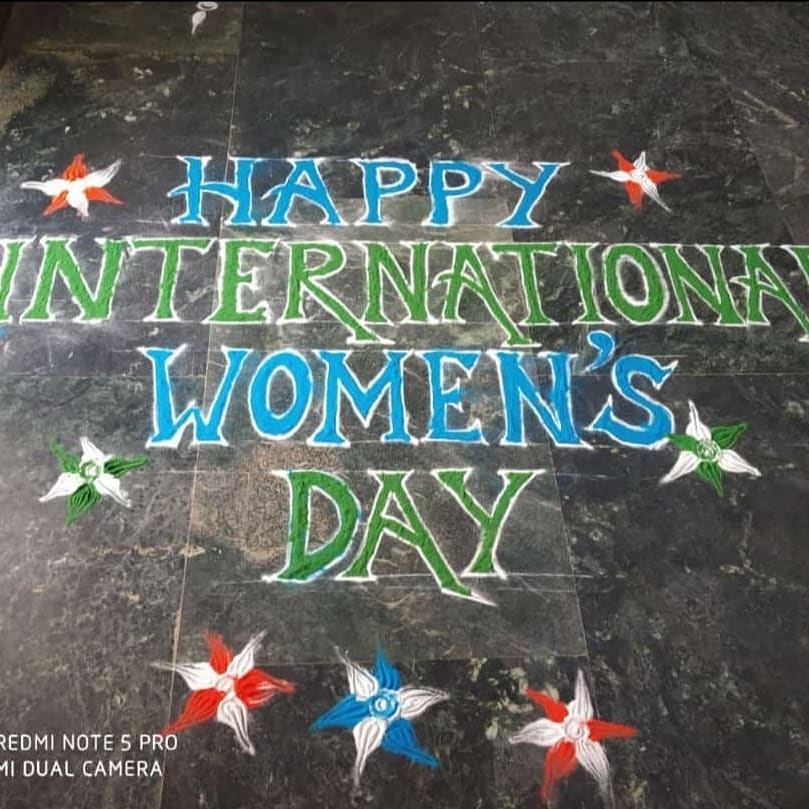 HAPPY
INTERNATIONAL
WOMEN'S
DAY
REDMI NOTE 5 PRO
MI DUAL CAMERA